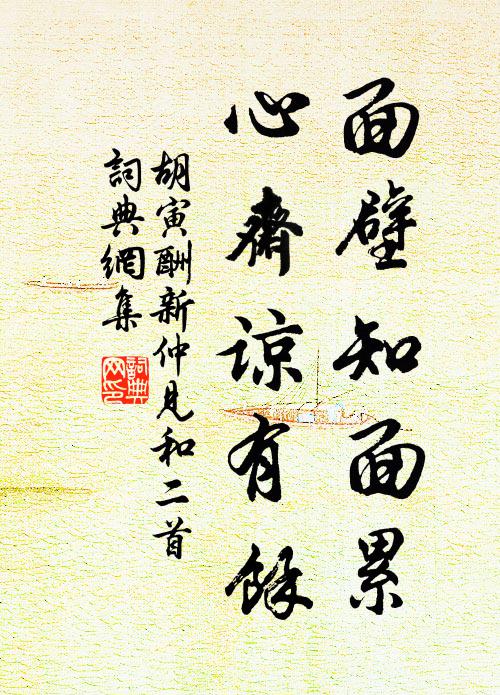 面壁知面累
心齋諒有餘
胡寅酬新仲見和二首
詞典網集
詞典
网印